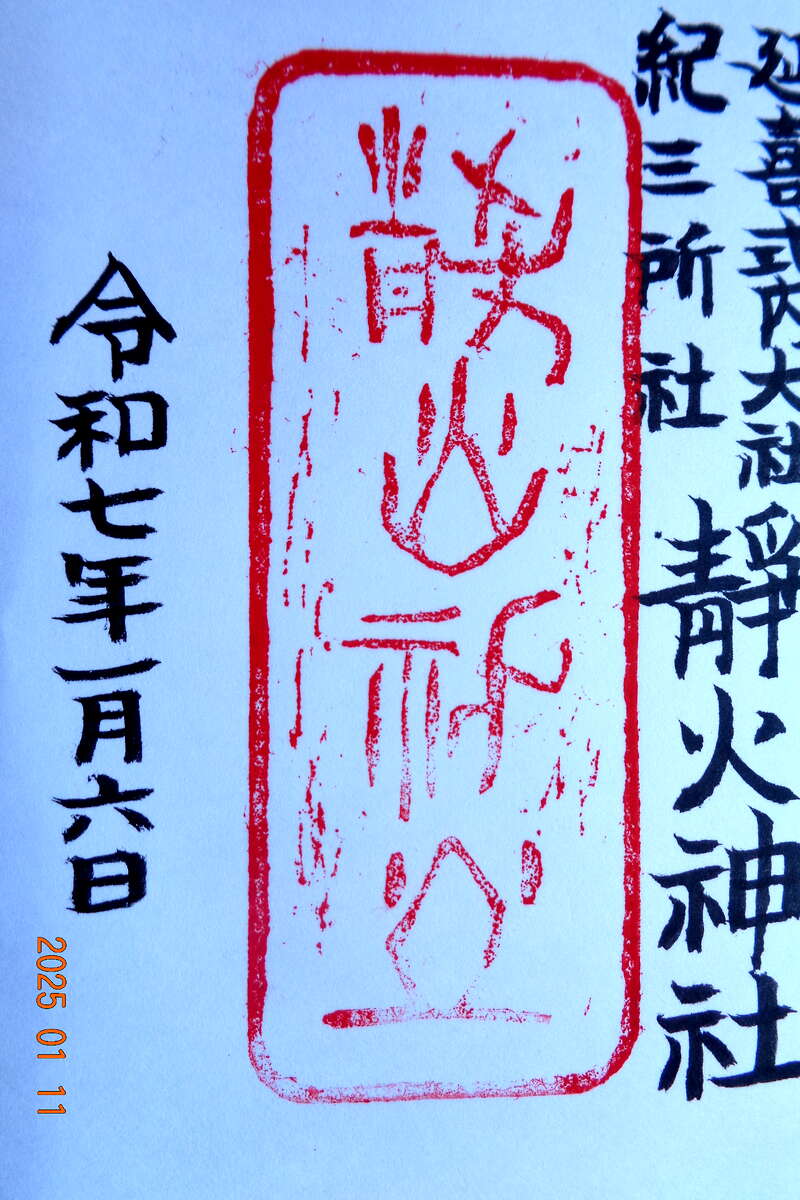 延喜式内大社
紀三所社
靜火神社
靜火神社
令和七年一月六日
2025 01 11